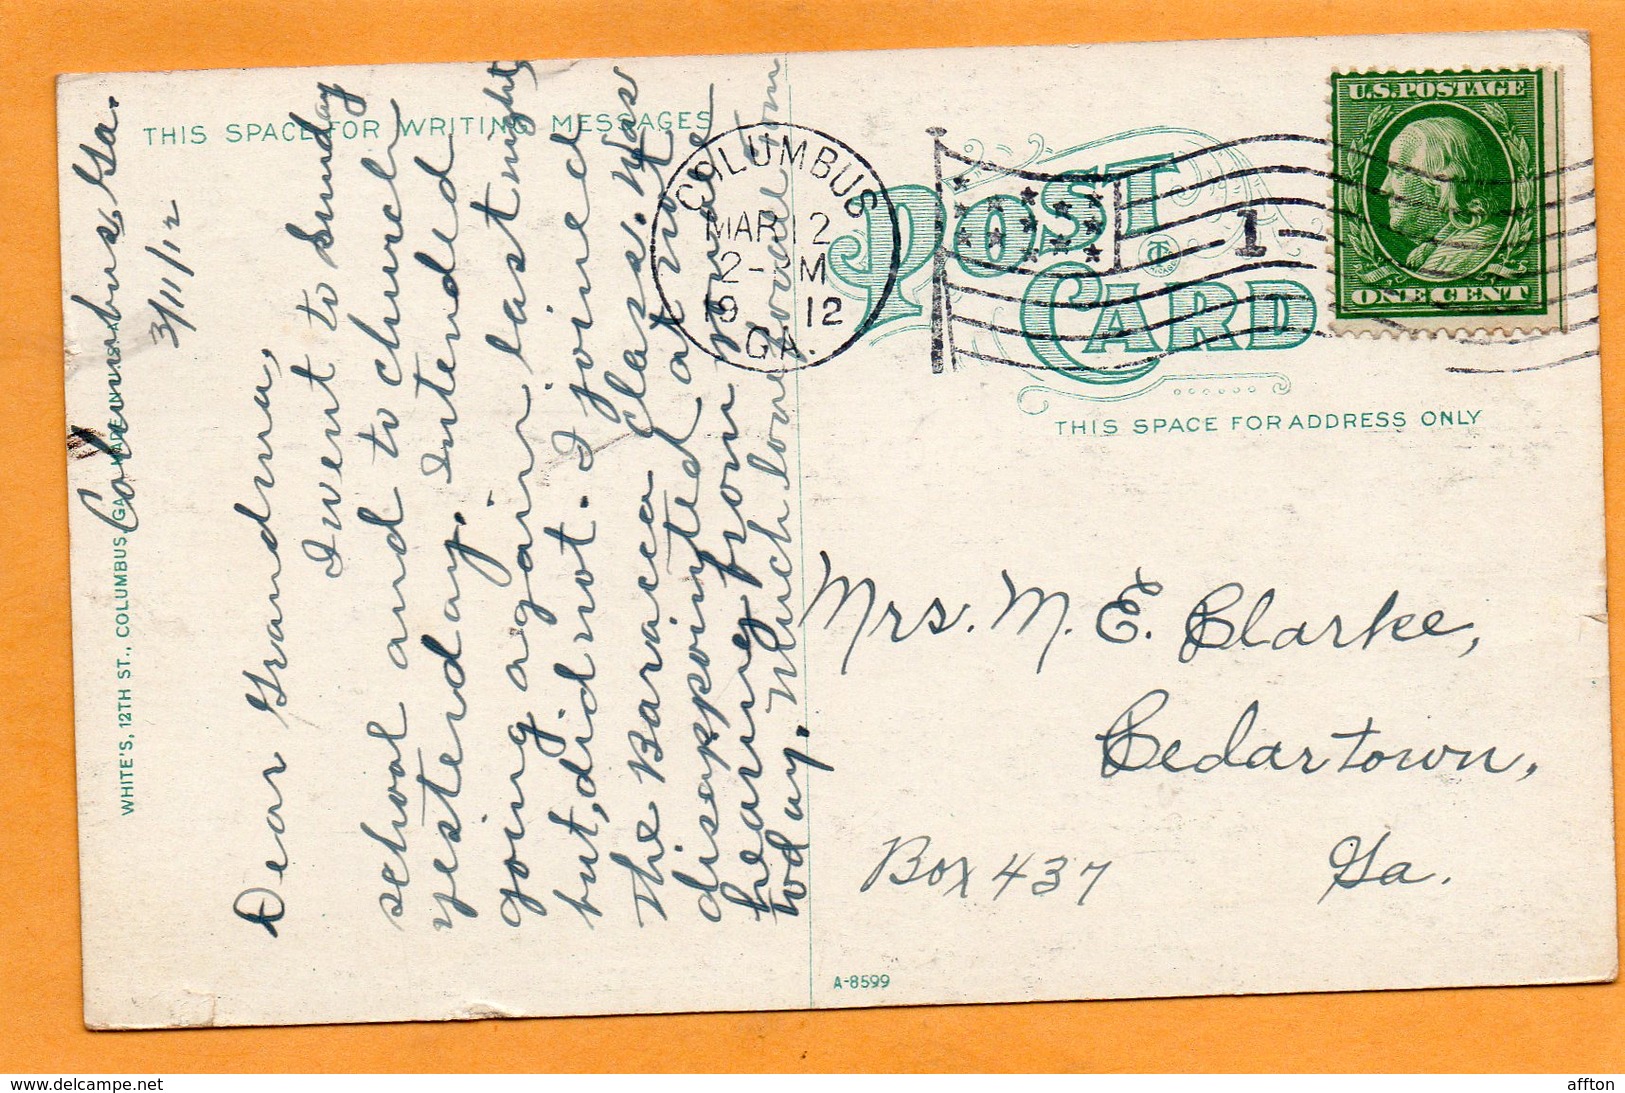 THIS SPACE FOR WRITING MESSAGES
Columbus, Ga.
3/11/12
Dear Grandma,
I went to Sunday
school and to church
yesterday. Intended
going again last night
but, did not. I joined
the Baraca Class. Was
disappointed at not
hearing from mother
today. Much love
WHITE'S, 12TH ST., COLUMBUS, GA.
COLUMBUS
MAR 12
2- M
19 12
GA.
POST
CARD
1
U.S. POSTAGE
ONE CENT
THIS SPACE FOR ADDRESS ONLY
Mrs. M. E. Clarke,
Cedartown,
Box 437 Ga.
A-8599
www.delcampe.net
affton